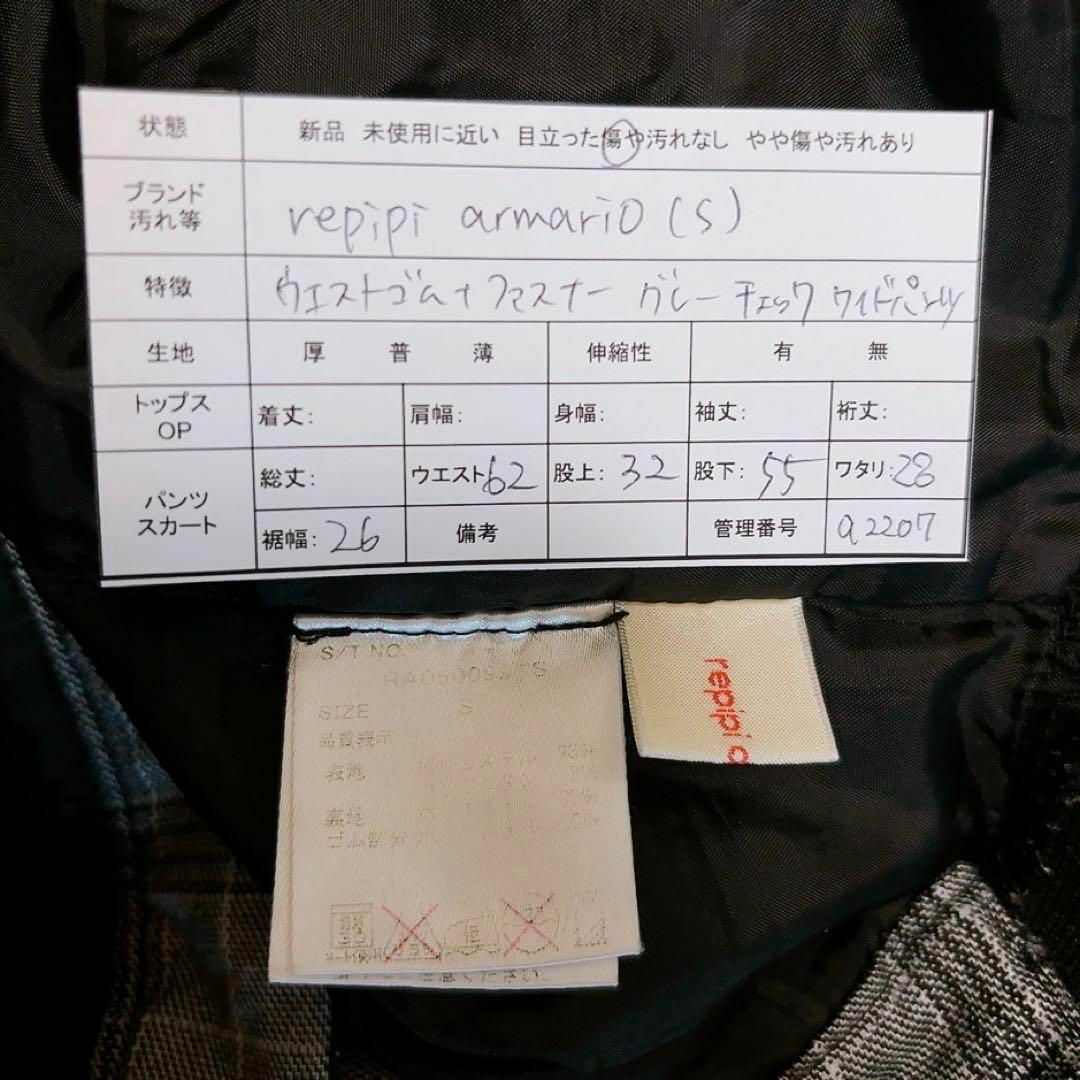 状態 新品 未使用に近い 目立った傷や汚れなし やや傷や汚れあり
ブランド
汚れ等 repipi armario (S)
特徴 ウエストゴム+ファスナー グレー チェック ワイドパンツ
生地 厚 普 薄 伸縮性 有 無
トップス
OP 着丈: 肩幅: 身幅: 袖丈: 裄丈:
パンツ
スカート 総丈: ウエスト62 股上:32 股下:55 ワタリ:28
裾幅:26 備考 管理番号 a2207
S/T NO
SIZE S
品質表示
表地 98%
裏地
ゴム部分
repipi a
ください